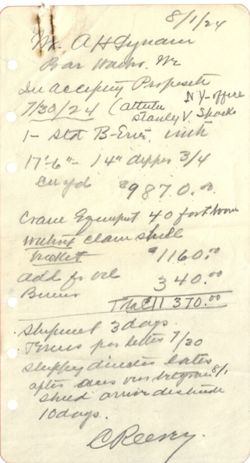 8/1/24
Mr. A H Dynam
Bar
In accepting Proposal
7/30/24 (attention N Y office
Stanley V. Spocks
1 - Std B-Erie with
17'-6" - 14" dipper 3/4
cu yd $9870.00
Crane Equipment 40 foot boom
without clam shell
bucket $1160.00
add for oil 340.00
Burner
Total 11 370.00
shipment 3 days.
Terms per letter 7/30
shipping directions later
after 8/1
should arrive
10 days.
C Reevy